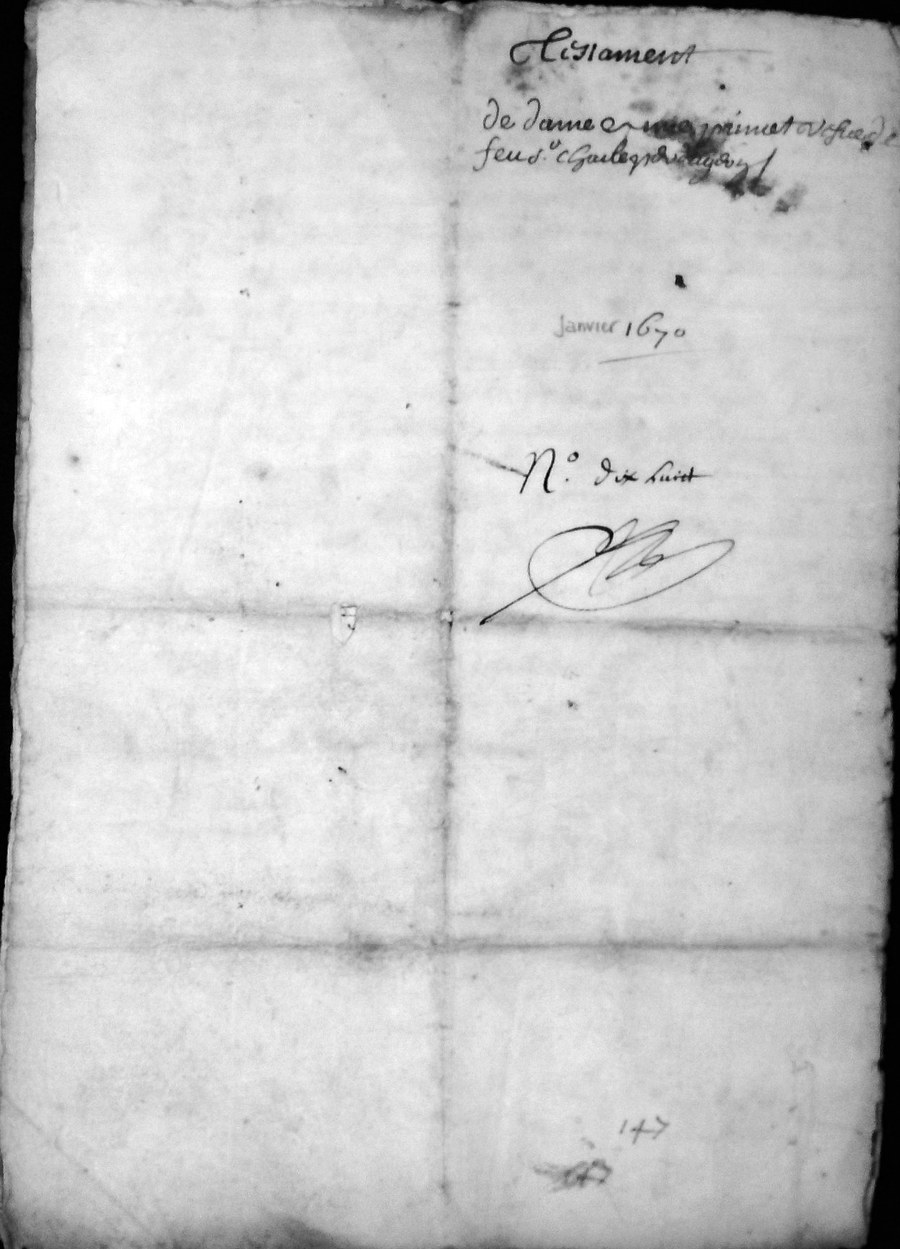 Testament
de dame primet vefve de
feu sr charles
Janvier 1670
No. dix huict
147